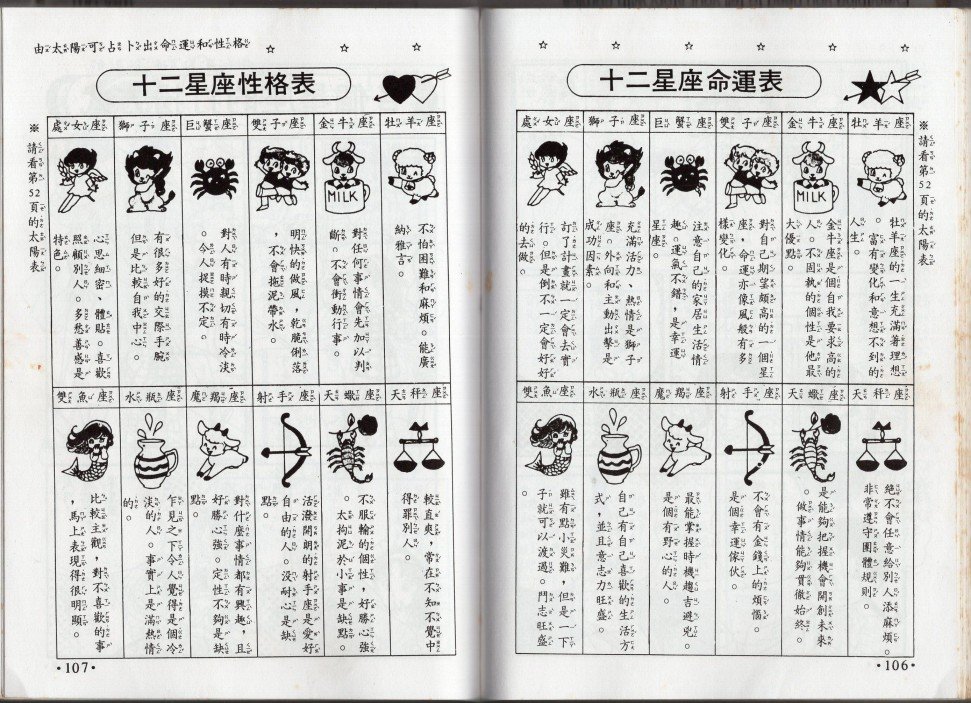 十二星座命運表
※請看第52頁的太陽表
牡羊座
牡羊座的一生充滿著理想
。富有變化和意想不到的
人生
金牛座
金牛座是個自我要求高的
人。不固執的個性是他最
大優點
雙子座
對自己期望頗高的一個星
座，命運亦像風般有多
樣變化
巨蟹座
注意自己的家居生活情
趣。運氣不錯，是幸運
星座。
獅子座
充滿活力、熱情是獅子
座。外向和主動出擊是
成功因素
處女座
訂了計畫就一定會去實
行。但是倒不一定會好好
的去做。
MILK
天秤座
絕不會任意給別人添麻煩。
非常遵守團體規則。
天蠍座
是能夠把握機會開創未來
。做事情能夠貫徹始終。
射手座
不會有金錢上的煩惱。
是個幸運傢伙。
魔羯座
最能掌握時機趨吉避兇
是個有野心的人。
水瓶座
自己有自己喜歡的生活方
式，並且意志力旺盛。
雙魚座
雖有點小災難，但是一下
子就可以渡過。鬥志旺盛
·106·
由太陽可占卜出命運和性格
十二星座性格表
※請看第52頁的太陽表
牡羊座
不怕困難和麻煩。能廣
納雅言。
金牛座
對任何事情會先加以判
斷。不會衝動行事。
雙子座
明快的做風，乾脆俐落
，不會拖泥帶水。
巨蟹座
對人有時親切有時冷淡
。令人捉摸不定。
獅子座
有很多好的交際手腕
但是比較自我中心。
處女座
心思細密、體貼。喜歡
照顧別人。多愁善感是
特色。
MILK
天秤座
較直爽，常在不知不覺中
得罪別人。
天蠍座
不服輸的個性，好勝心強
。太拘泥於小事是缺點。
射手座
活潑開朗的射手座是愛好
自由的人。沒耐心是缺
點。
魔羯座
對什麼事情都有興趣，且
好勝心強。定性不夠是缺
點。
水瓶座
乍見之下令人覺得是個冷
淡的人。事實上是滿熱情
的。
雙魚座
比較主觀，對不喜歡的事
，馬上表現得很明顯。
·107·